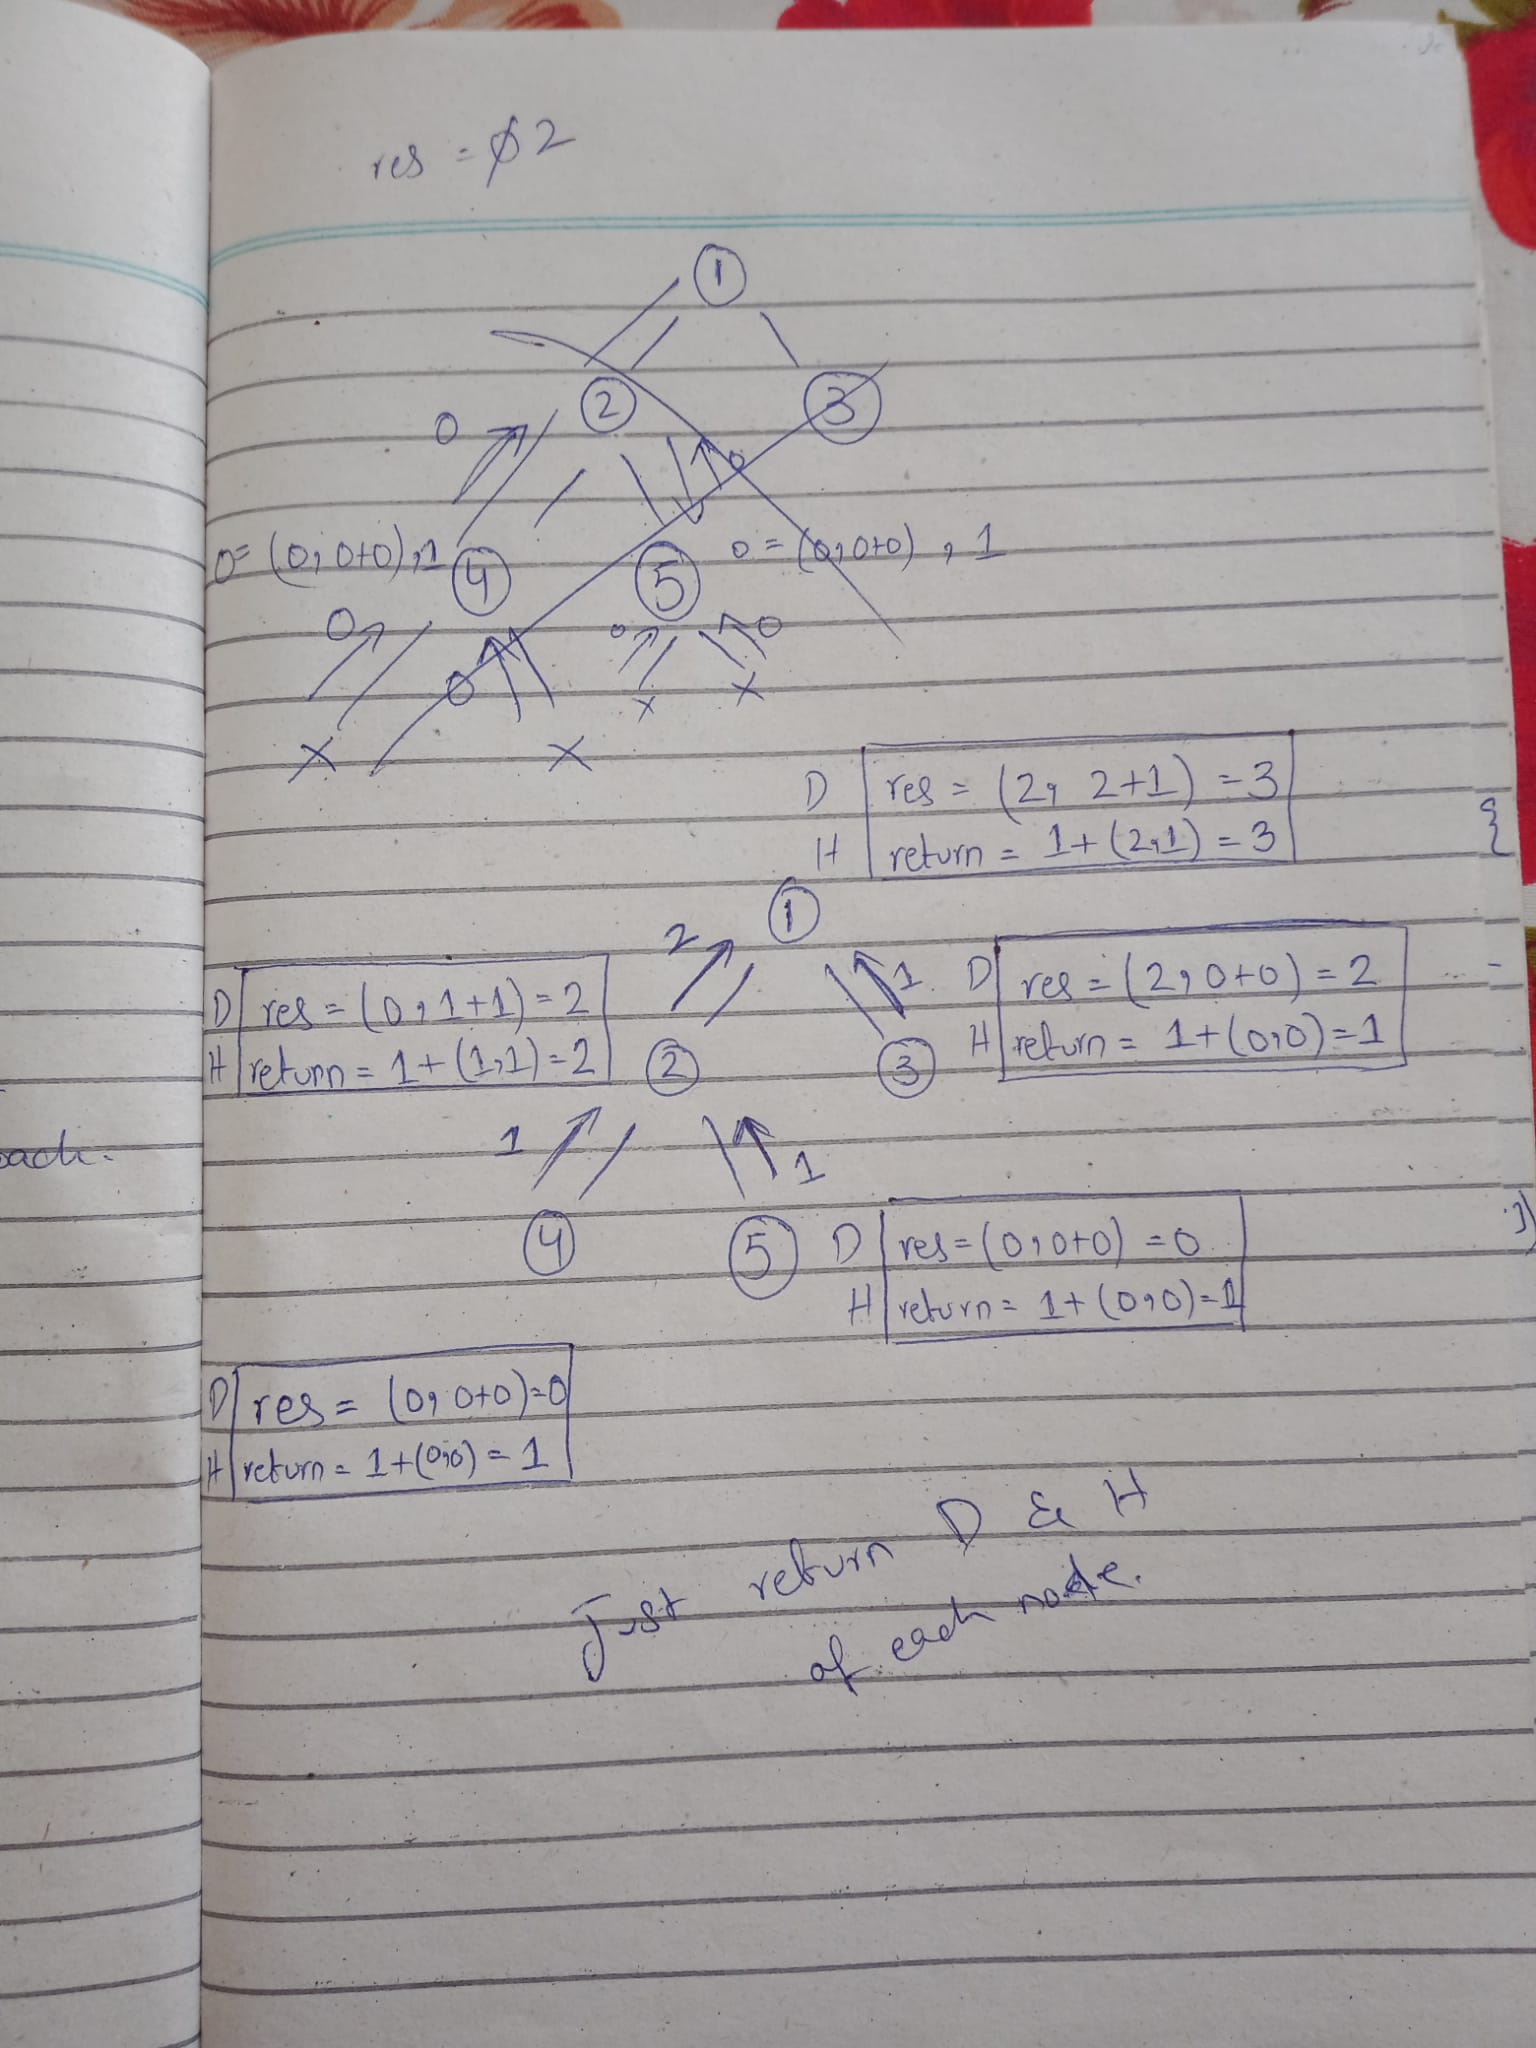 res = 0 2
1
2 3
0
0
0= (0, 0+0), 1 4 5 0 = (0, 0+0) , 1
0 0 0
0
x x
x x
D res = (2, 2+1) = 3
H return = 1+ (2,1) = 3
1
2 1
D res = (0, 1+1) = 2
H return = 1+ (1,1) = 2
D res = (2, 0+0) = 2
H return = 1+(0,0)=1
2 3
1 1
4 5
D res=(0,0+0) =0
H return= 1+(0,0)=1
D res = (0, 0+0)=0
H return = 1+(0,0) = 1
Just return D & H
of each node.